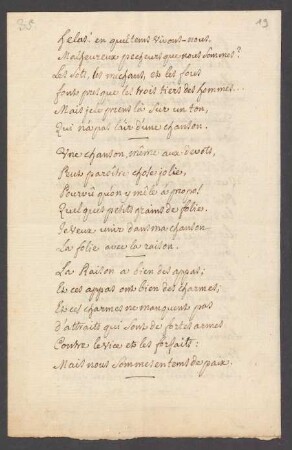 85
19
helas! en quel tems vivons-nous.
Malheureux pecheurs que nous sommes?
Les Sots, les mechans, et les fous
font presque les trois tiers des hommes...
Mais je le prens là sur un ton,
Qui n'a pas l'air d'une chanson.
Une chanson, même aux devots,
Peut paroître chose jolie,
Pourvû qu'on y mêle à propos
Quelques petits grains de folie.
Je veux unir dans ma chanson
La folie avec la raison.
La Raison a bien des appas;
Et ces appas ont bien des charmes;
Et ces charmes ne manquent pas
d'attraits qui sont de fortes armes
Contre le vice et les forfaits:
Mais nous sommes en tems de paix.